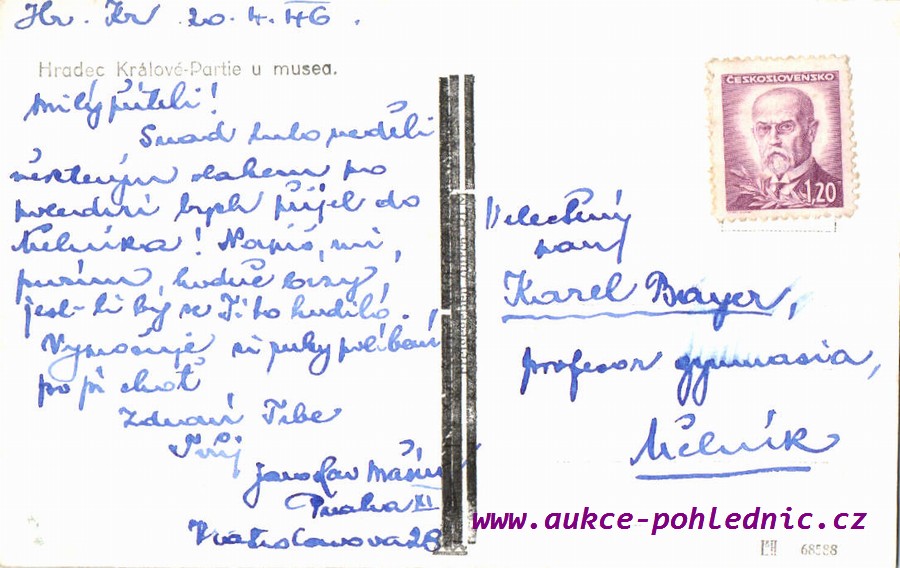 Hr. Kr 20.4.46.
Hradec Králové-Partie u musea.
Milý příteli!
Snad tuto neděli
vlakem po
poledni bych přijel do
Mělníka! Napiš mi,
prosím, hodně brzy,
jest-li by se Ti to hodilo.
Vyřizuje ruky políbení
choť
Zdraví Tebe
Tvůj
Jaroslav
Praha XI
28
ČESKOSLOVENSKO
1,20
Velectěný
pan
Karel Bayer,
profesor gymnasia,
Mělník
www.aukce-pohlednic.cz
68588